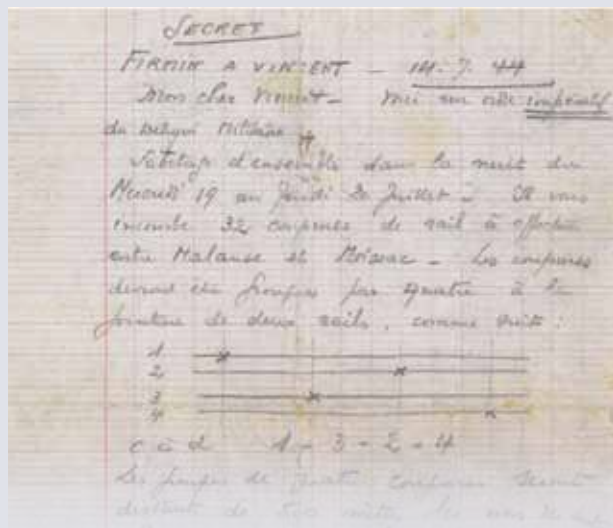 SECRET
FIRMIN A VINCENT - 14.7.44
Mon cher Vincent - Voici un ordre impératif
du Délégué Militaire
Sabotage d'ensemble dans la nuit du
Mercredi 19 au Jeudi 20 Juillet - Il vous
incombe 32 coupures de rail à effectuer
entre Malause et Moissac - Les coupures
devront être groupées par quatre à la
jointure de deux rails, comme suit :
1
2
3
4
c à d 1 - 3 - 2 - 4
Les groupes de quatre coupures seront
distants de mètres les uns